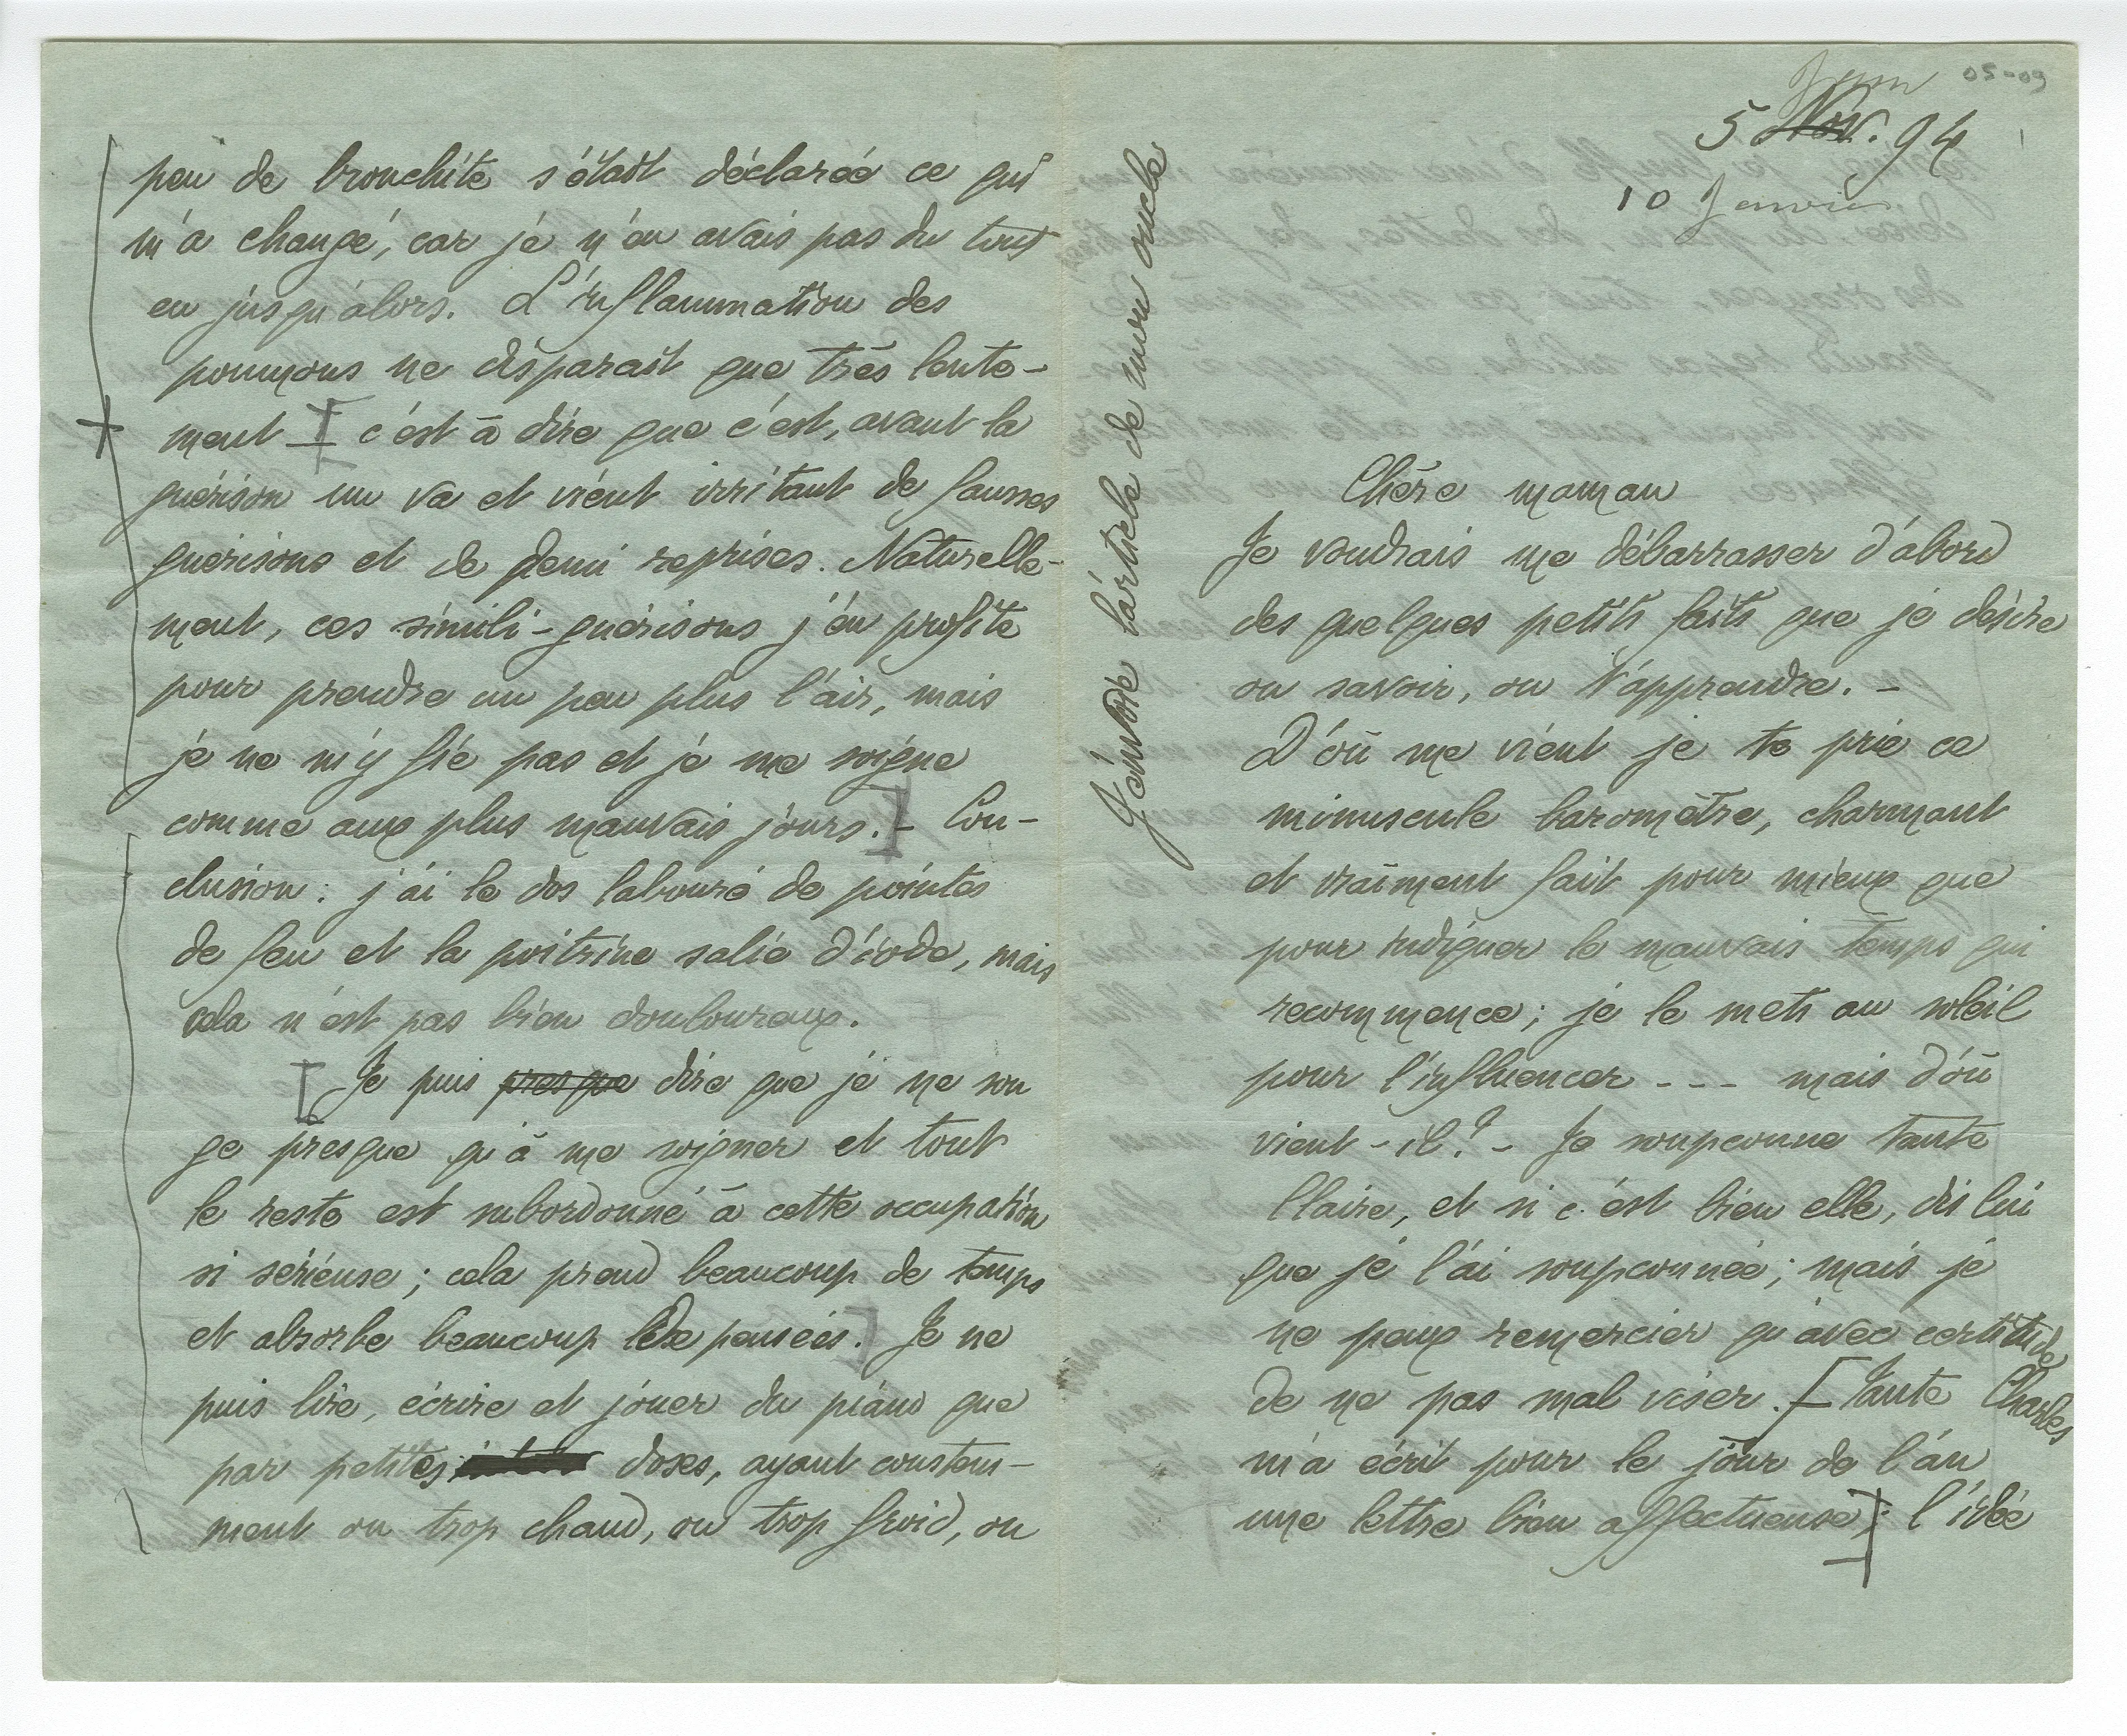 peu de bronchite s'était déclarée ce qui
m'a changé, car je n'en avais pas du tout
eu jusqu'alors. L'inflammation des
poumons ne disparait que très lente-
ment – c'est à dire que c'est, avant la
guérison un va et vient irritant de fausses
guérisons et de demi reprises. Naturelle-
ment, ces simili-guérisons j'en profite
pour prendre un peu plus l'air, mais
je ne m'y fie pas et je me soigne
comme aux plus mauvais jours. – Con-
clusion : j'ai le dos labouré de pointes
de feu et la poitrine salie d'iode, mais
cela n'est pas bien douloureux.
Je puis presque dire que je ne son
ge presque qu'à me soigner et tout
le reste est subordonné à cette occupation
si sérieuse ; cela prend beaucoup de temps
et absorbe beaucoup de pensées. Je ne
puis lire, écrire et jouer du piano que
par petites doses, ayant constam-
ment ou trop chaud, ou trop froid, ou
J'envoie l'article de mon oncle
05-09
Janv
5 Nov. 94
10 Janvier
Chère maman
Je voudrais me débarrasser d'abord
des quelques petits faits que je désire
ou savoir, ou t'apprendre. –
D'où me vient je te prie ce
minuscule baromètre, charmant
et vraiment fait pour mieux que
pour indiquer le mauvais temps qui
recommence ; je le mets au soleil
pour l'influencer - - - mais d'où
vient-il ? – Je soupçonne tante
Claire, et si c'est bien elle, dis lui
que je l'ai soupçonnée ; mais je
ne peux remercier qu'avec certitude
de ne pas mal viser. – [Tante Charles
m'a écrit pour le jour de l'an
une lettre bien affectueuse] ; l'idée